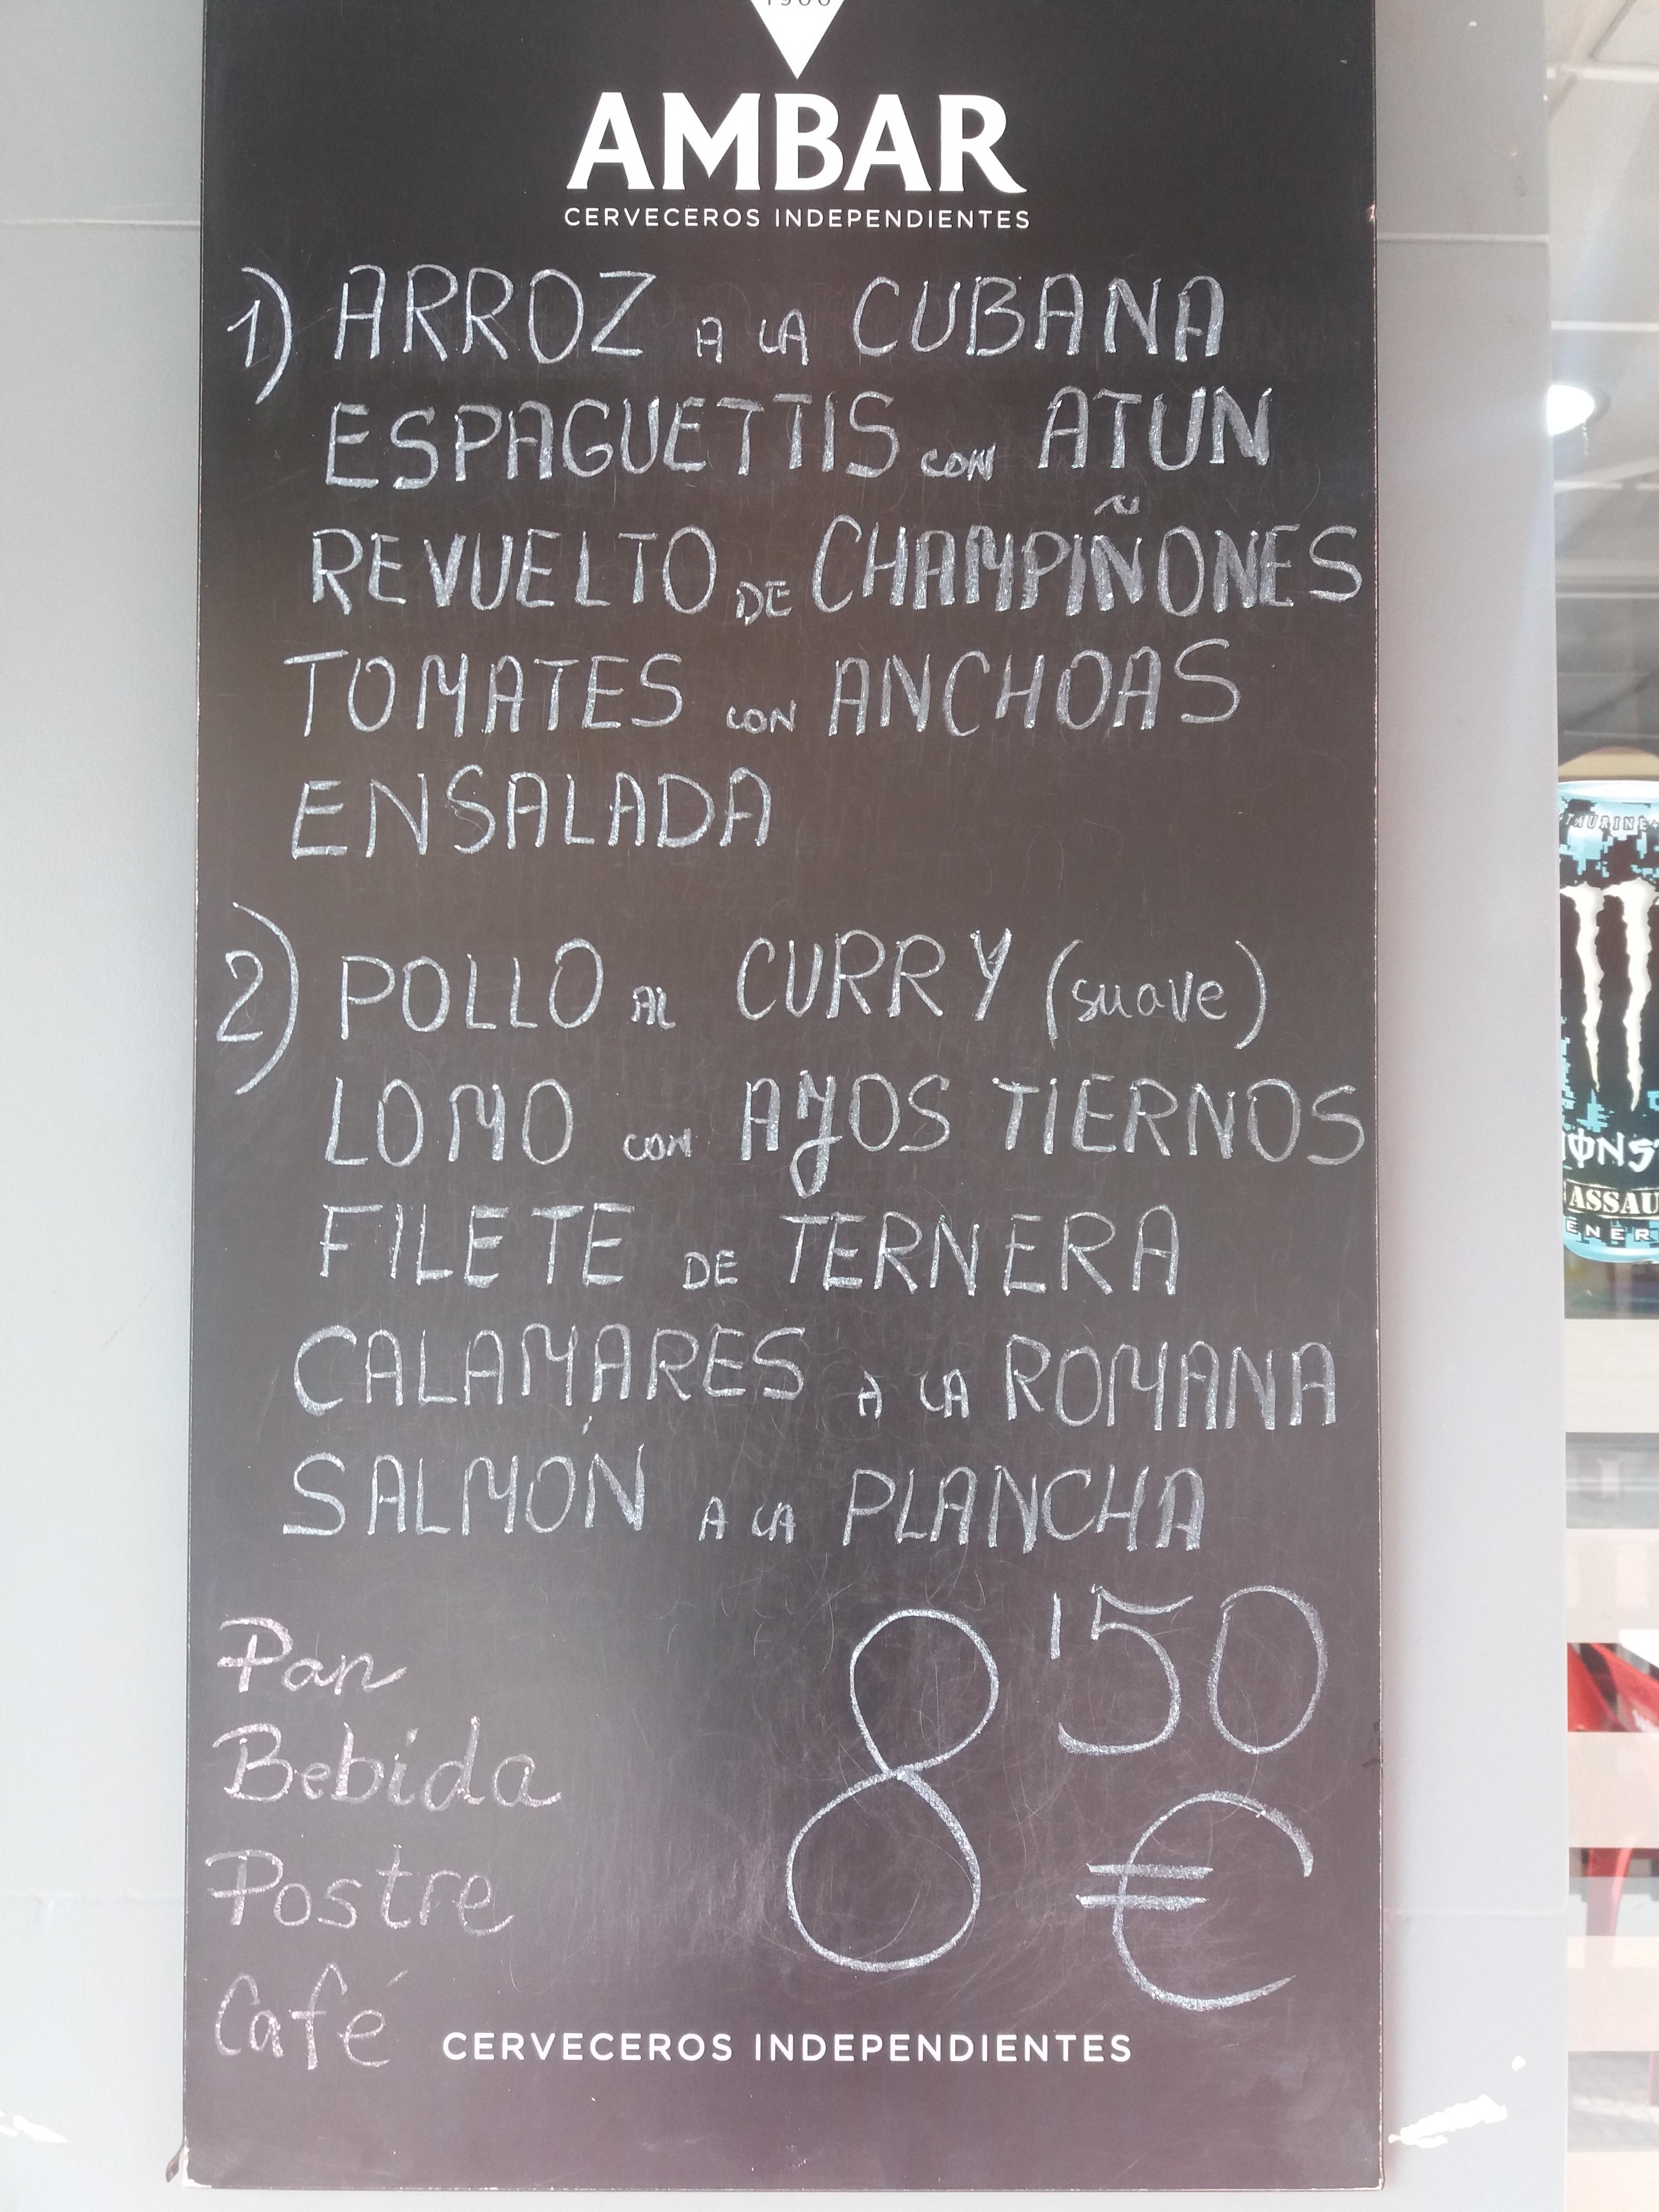 1900
AMBAR
CERVECEROS INDEPENDIENTES
1) ARROZ A LA CUBANA
ESPAGUETTIS CON ATUN
REVUELTO DE CHAMPIÑONES
TOMATES CON ANCHOAS
ENSALADA
2) POLLO AL CURRY (suave)
LOMO CON AJOS TIERNOS
FILETE DE TERNERA
CALAMARES A LA ROMANA
SALMÓN A LA PLANCHA
8'50
€
Pan
Bebida
Postre
Café
CERVECEROS INDEPENDIENTES
TAURINE
MONST
ASSAU
ENER